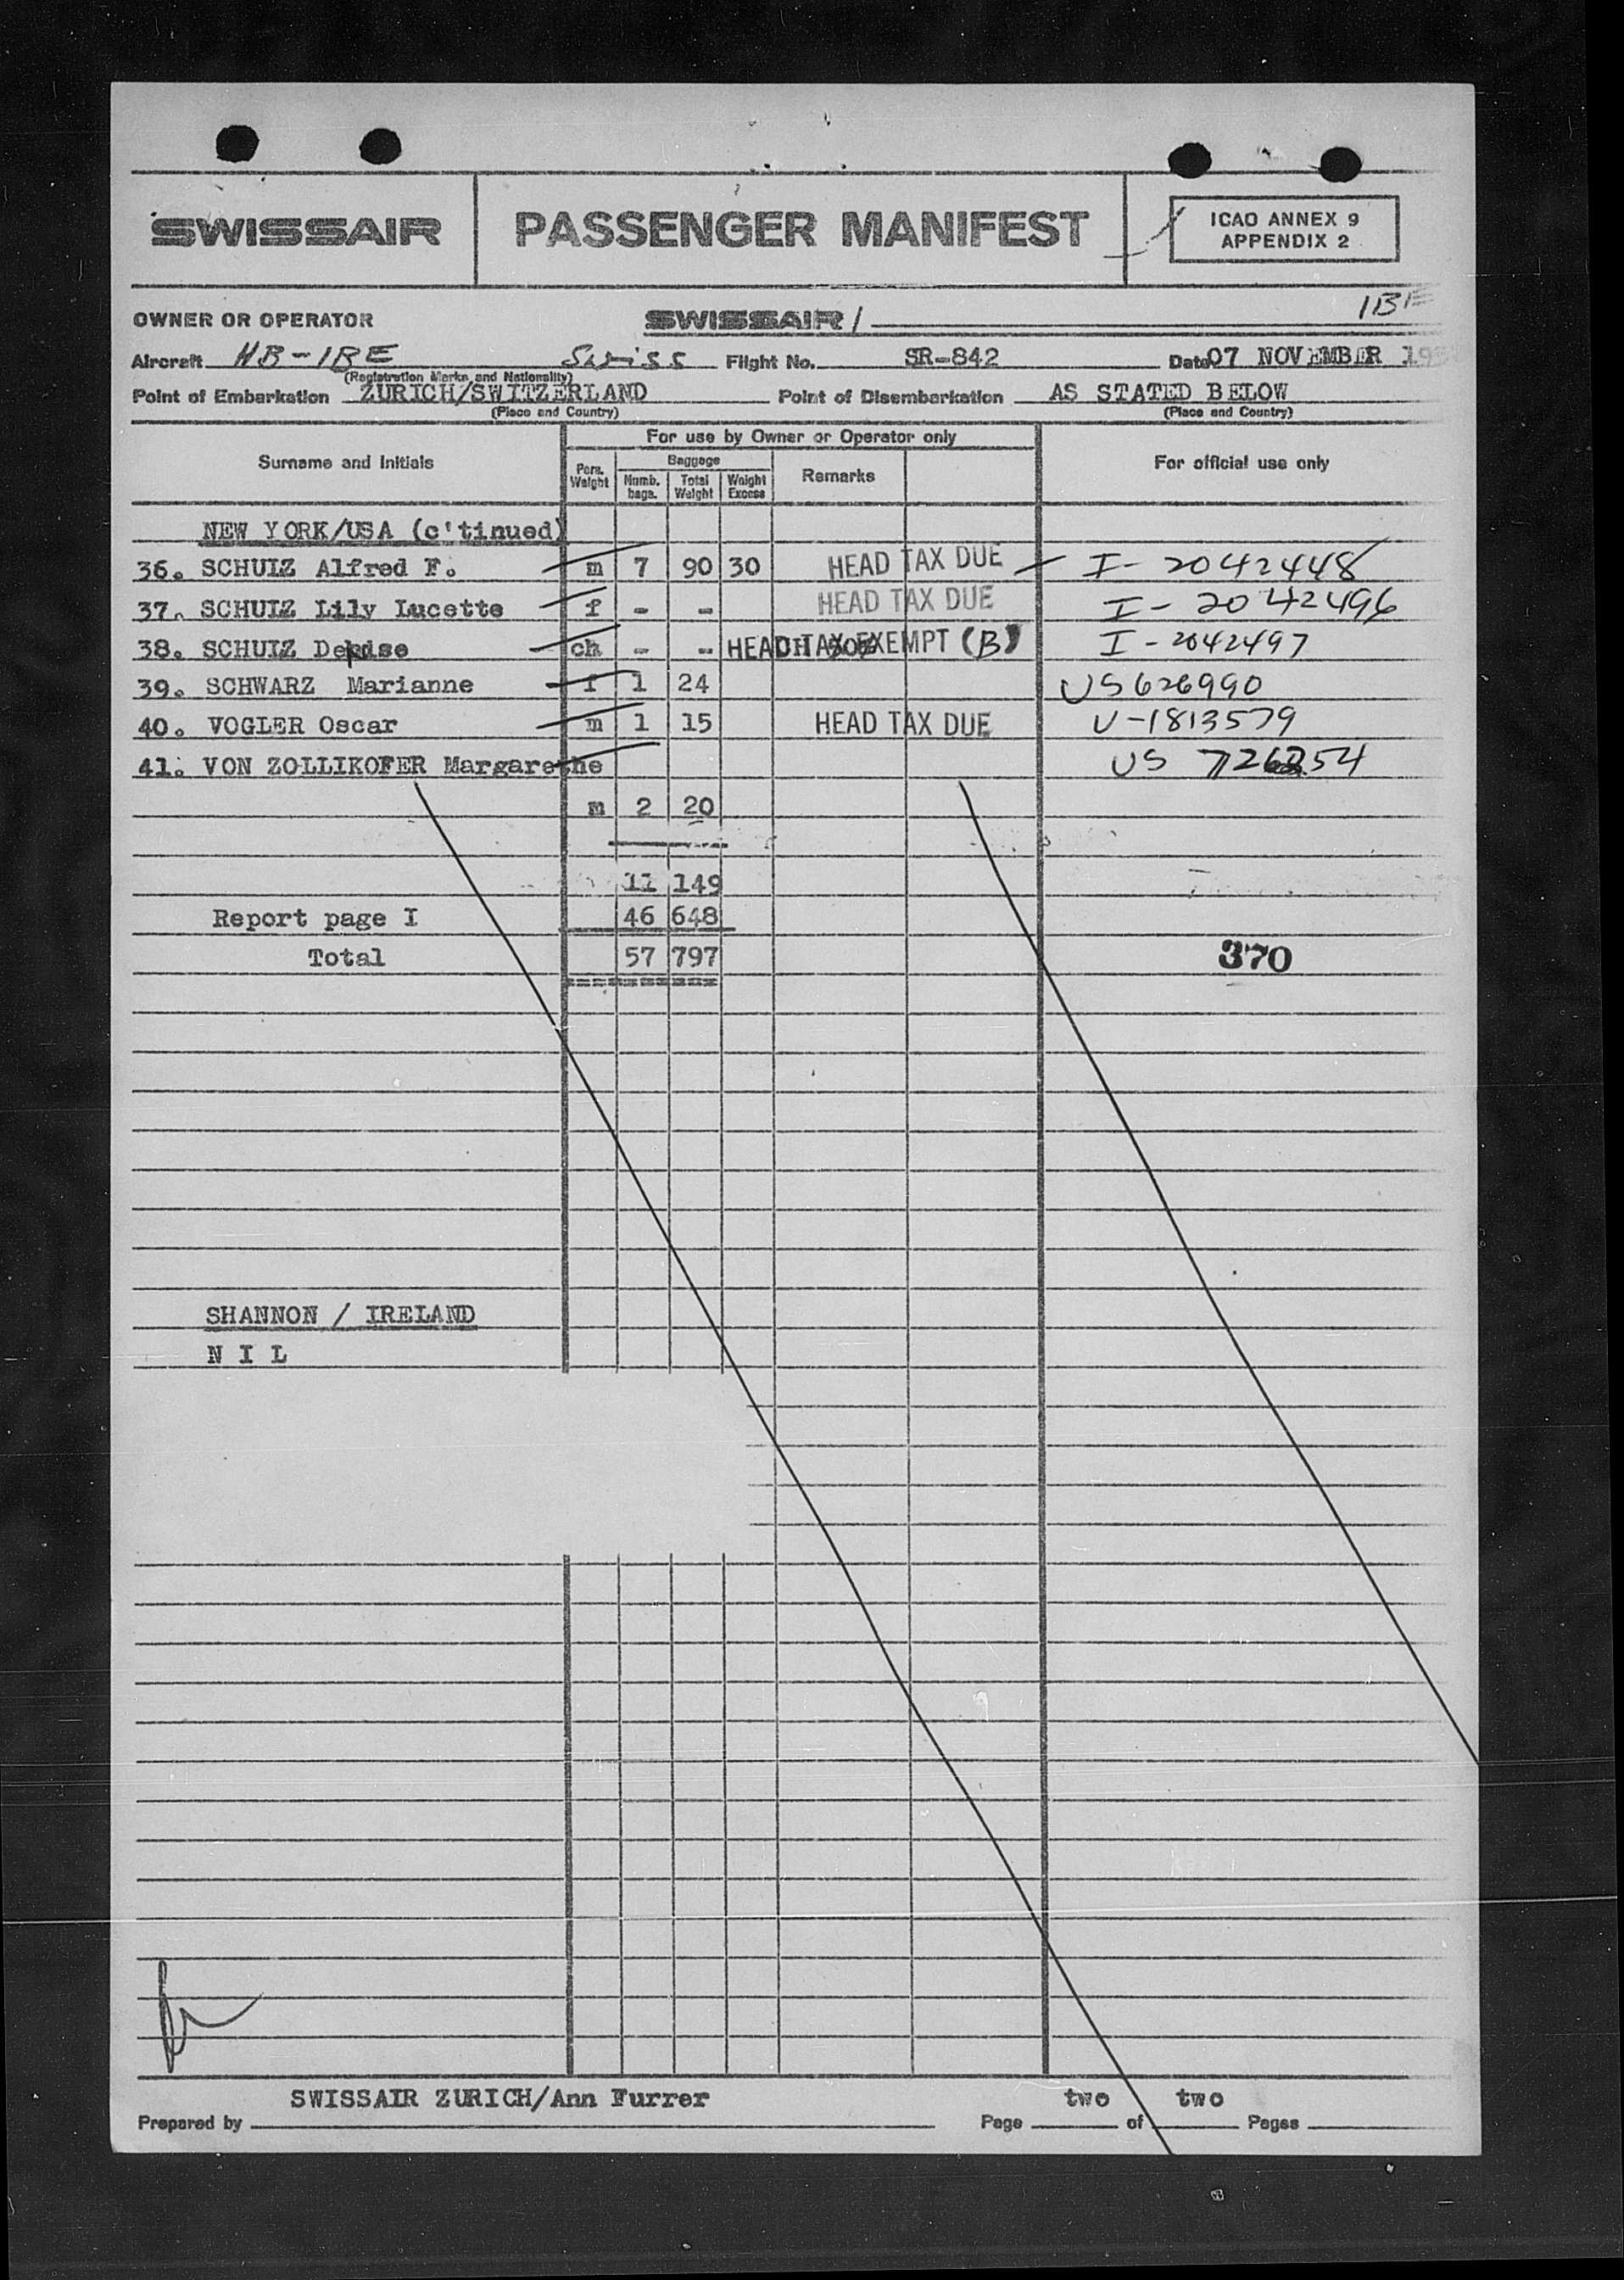 SWISSAIR PASSENGER MANIFEST ICAO ANNEX 9
APPENDIX 2
IBE
OWNER OR OPERATOR SWISSAIR/
Aircraft HB-IBE Swiss Flight No. SR-842 Date 07 NOVEMBER
(Registration Marks and Nationality)
Point of Embarkation ZURICH/SWITZERLAND Point of Disembarkation AS STATED BELOW
(Place and Country) (Place and Country)
Surname and Initials For use by Owner or Operator only For official use only
Pers. Weight Baggage Remarks
Numb. bags. Total Weight Weight Excess
NEW YORK/USA (c'tinued)
36. SCHULZ Alfred F. m 7 90 30 HEAD TAX DUE I-2042448
37. SCHULZ Lily Lucette f - - HEAD TAX DUE I-2042496
38. SCHULZ Denise ch - - HEAD TAX EXEMPT (B) I-2042497
39. SCHWARZ Marianne f 1 24 US 626990
40. VOGLER Oscar m 1 15 HEAD TAX DUE V-1813579
41. VON ZOLLIKOFER Margarethe US
m 2 20
11 149
Report page I 46 648
Total 57 797 370
SHANNON / IRELAND
N I L
SWISSAIR ZURICH/Ann Furrer two two
Prepared by Page of Pages